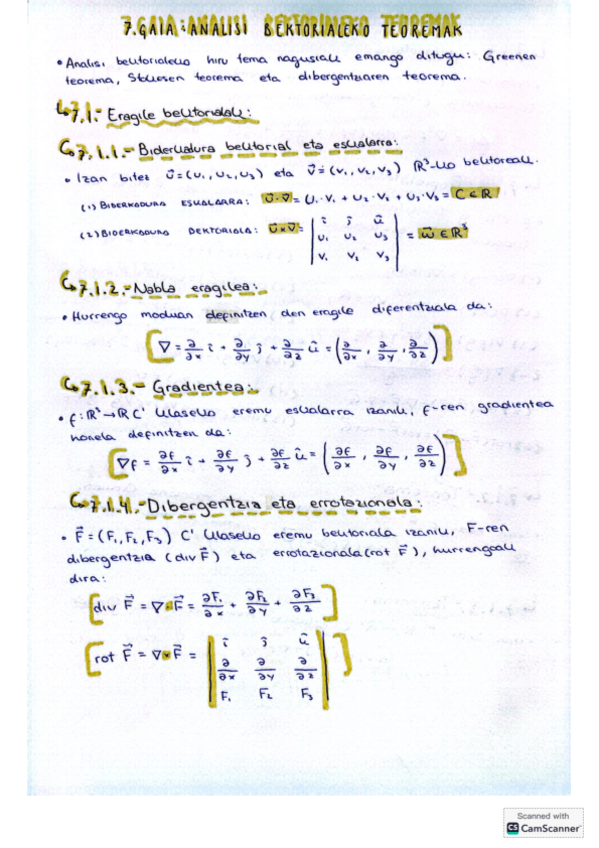 7.GAIA: ANALISI BEKTORIALEKO TEOREMAK
• Analisi bektorialeko hiru tema nagusiak emango ditugu: Greenen
teorema, Stokesen teorema eta dibergentziaren teorema.
↳7.1.- Eragile bektorialak:
↳7.1.1.- Biderkadura bektorial eta eskalarra:
• Izan bitez ū=(u₁,u₂,u₃) eta v̄=(v₁,v₂,v₃) ℝ³-ko bektoreak.
(1) BIDERKADURA ESKALARRA: ū·v̄ = u₁·v₁ + u₂·v₂ + u₃·v₃ = C ∈ ℝ
(2) BIDERKADURA BEKTORIALA: ū×v̄ = | î ĵ k̂ |
| u₁ u₂ u₃ | = w̄ ∈ ℝ³
| v₁ v₂ v₃ |
↳7.1.2.- Nabla eragilea:
• Hurrengo moduan definitzen den eragile diferentziala da:
[∇ = ∂/∂x î + ∂/∂y ĵ + ∂/∂z k̂ = (∂/∂x, ∂/∂y, ∂/∂z)]
↳7.1.3.- Gradientea:
• f: ℝ³→ℝ C¹ klaseko eremu eskalarra izanik, f-ren gradientea
honela definitzen da:
[∇f = ∂f/∂x î + ∂f/∂y ĵ + ∂f/∂z k̂ = (∂f/∂x, ∂f/∂y, ∂f/∂z)]
↳7.1.4.- Dibergentzia eta errotazionala:
• F⃗ = (F₁, F₂, F₃) C¹ klaseko eremu bektoriala izanik, F-ren
dibergentzia (div F⃗) eta errotazionala (rot F⃗), hurrengoak
dira:
[div F⃗ = ∇·F⃗ = ∂F₁/∂x + ∂F₂/∂y + ∂F₃/∂z]
[rot F⃗ = ∇×F⃗ = | î ĵ k̂ |
| ∂/∂x ∂/∂y ∂/∂z |]
| F₁ F₂ F₃ |
Scanned with
CS CamScanner